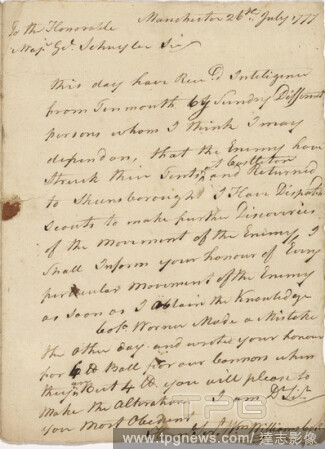 To the Honorable Manchester 26th July 1777
Majr Gl Schuyler Sir
this day have Recd Inteligence
from Tinmouth by Sunday Different
persons whom I think I may
dependon, that the Enemy have
Struck their Tents at Castleton and Returned
to Sheensborough I Have Dispatcd
scouts to make further Discoveries
of the Movement of the Enemy, I
Shall Inform your honour of Every
perticular Movement of the Enemy
as soon as I obtain the Knowledge
Colo Warner Made a Mistake
the other day and wrote your honour
for 6 lb Ball for our Cannon when
they but 4 lb you will please to
Make the Alteration I am Dr Sir
you Most Obedient
Wm Williams
TPG
www.tpgnews.com/達志影像